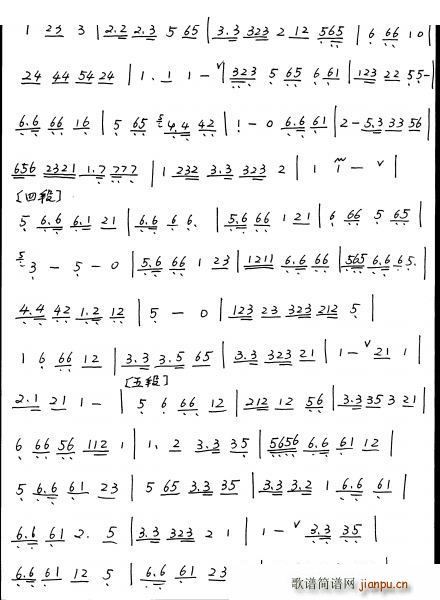 1 23 3 | 2.2 2.3 5 65 | 3.3 323 2 12 565 | 6 66 10 |
24 44 54 24 | 1. 1 1 - ∨ | 323 5 65 6 61 | 123 22 55- |
6.6 66 16 | 5 65 5 4.4 42 | 1 - 0 6.6 61 | 2 - 5.3 33 56 |
656 2321 1.7 777 | 1 232 3.3 323 2 | 1 1 - ∨ |
[四段]
5 6.6 6.1 21 | 6.6 6 6. | 5.6 66 1 21 | 6 66 5 65 |
5 3 - 5 - 0 | 5.6 66 1 23 | 1211 6.6 66 | 565 6.6 65. |
4.4 42 1.2 12 | 5 - 0 | 123 23 323 212 5 |
1 6 66 12 | 3.3 3.5 65 | 3.3 323 21 | 1 - ∨ 21 1 |
[五段]
2.1 21 1 - | 5 6 66 12 | 212 12 56 | 3.3 35 3 21 |
6 66 56 112 1 | 1. 2 3.3 35 | 5656 6.6 61 12 |
5 6.6 61 23 | 5 65 3.3 35 | 3.3 3.2 1 6.6 61 |
6.6 61 2. 5 | 3.3 323 2 1 | 1 - ∨ 3.3 35 |
6.6 61 12 5 | 6.6 61 23
歌谱简谱网
jianpu.cn